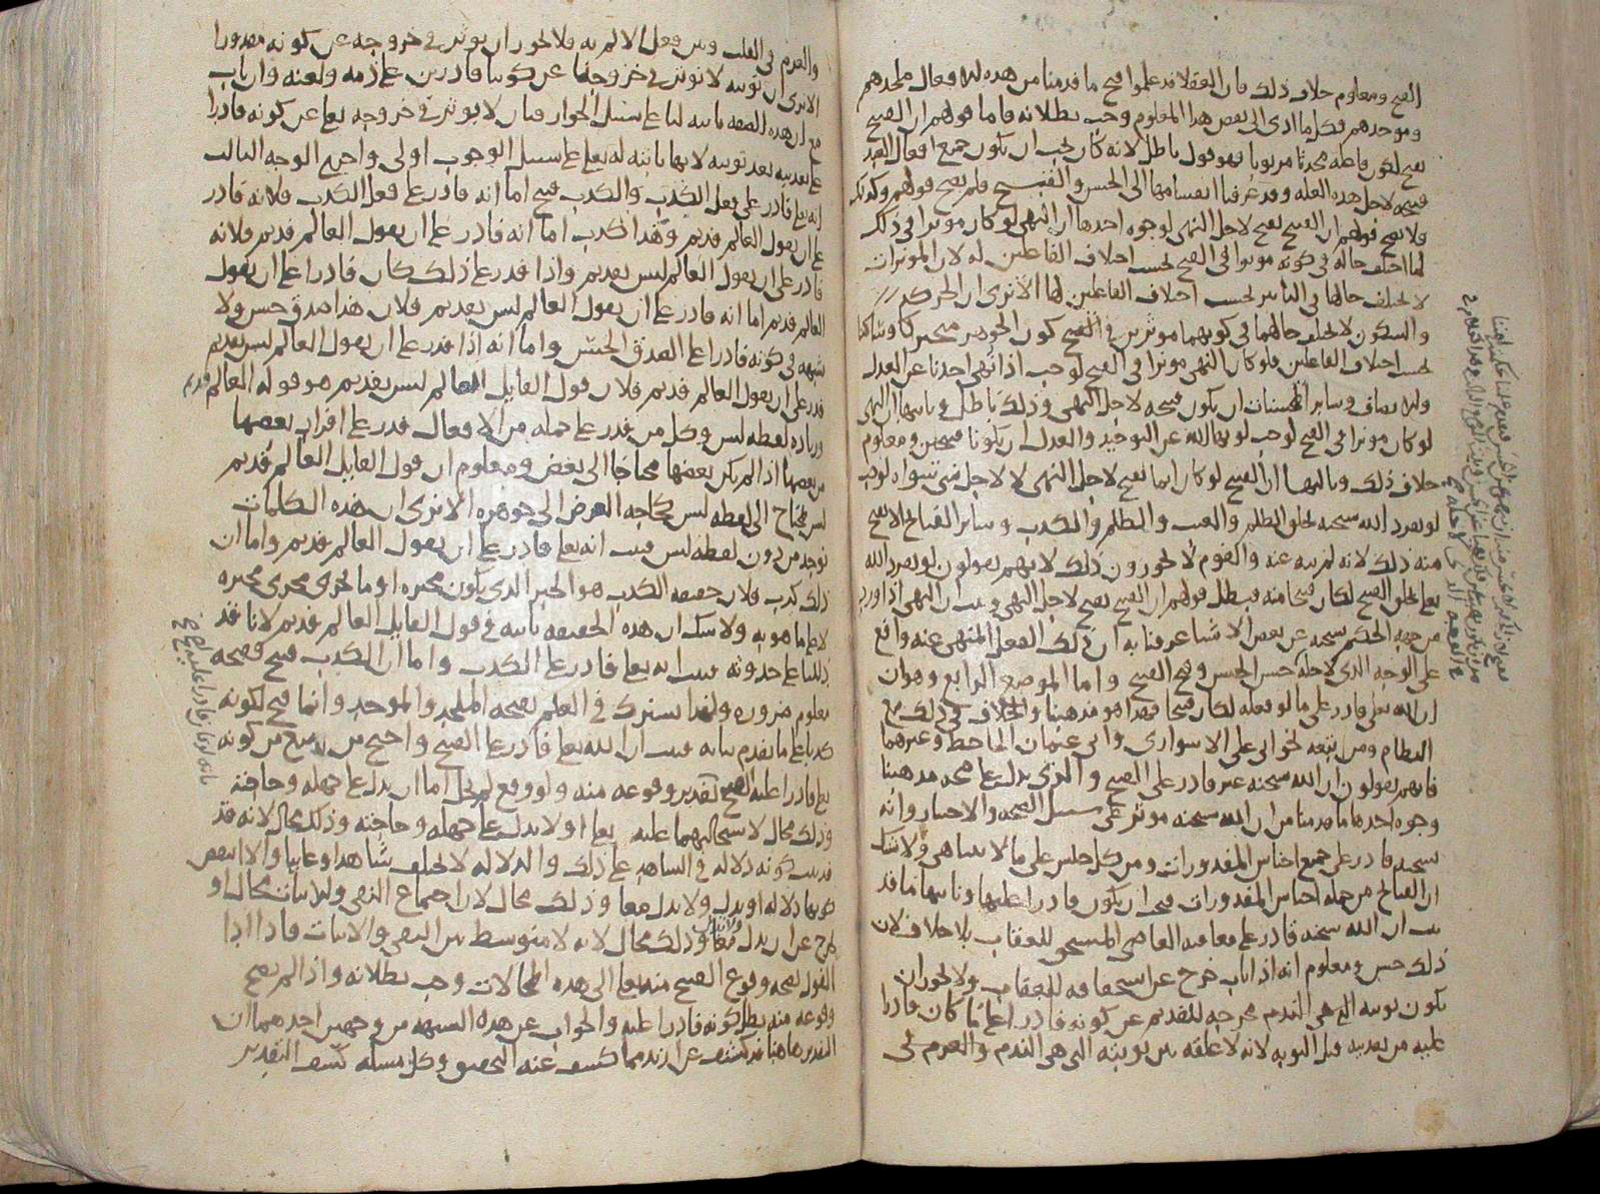 القبح ومعلوم خلاف ذلك فان العقلا قد علموا قبح ما قدمنا من هذه الافعال ملحدهم
وموحدهم فكل ما ادى الى بعض هذا المعلوم وجب بطلانه فاما قولهم ان القبيح
يقبح لكون فاعله محدثا مربوبا فهو قول باطل لانه كان يجب ان يكون جميع افعال العبد
قبيحه لاجل هذه العله وقد عرفنا انقسامها الى الحسن والقبيح فلم يصح قولهم وكذلك
فلا يصح قولهم ان القبيح يقبح لاجل النهي لوجوه احدها ان النهي لو كان موثرا في ذلك
لما اختلف حاله في كونه موثرا في القبح بحسب اختلاف الفاعلين له لان الموثرات
لا يختلف حالها في التاثير بحسب اختلاف الفاعلين لها الا ترى ان الحركه
والسكون لا يختلف حالهما في كونهما موثرين في كون الجوهر متحركا وساكنا
بحسب اختلاف الفاعلين فلو كان النهي موثرا في القبح لوجب اذا نهى احدنا عن العدل
والانصاف وساير المحسنات ان يكون قبيحه لاجل النهي وذلك باطل وثانيها ان النهي
لو كان موثرا في القبح لوجب لو نهى الله عن التوحيد والعدل ان يكونا قبيحين ومعلوم
خلاف ذلك وثالثها ان القبيح لو كان انما يقبح لاجل النهي لا لاجل شي سواه لوجب
لو تفرد الله سبحنه بخلق الظلم والعبث والظلم والكذب وساير القبائح الا يقبح
منه ذلك لانه لم ينه عنه والقوم لا يجوزون ذلك لانهم يقولون لو تفرد الله
تعالى بخلق القبيح لكان قبيحا منه فبطل قولهم ان القبيح يقبح لاجل النهي وثبت ان النهي اذا ورد
من جهه الحكيم سبحنه عن بعض الاشيا عرفنا به ان ذلك الفعل المنهي عنه واقع
على الوجه الذي لاجله حسن الحسن وقبح القبيح واما الموضع الرابع وهو ان
ان الله تعلى قادر على ما لو فعله لكان قبيحا فهذا هو مذهبنا والخلاف في ذلك مع
النظام ومن تبعه نحو ابي علي الاسواري وابي عثمان الجاحظ وغيرهما
فانهم يقولون ان الله سبحنه غير قادر على القبيح والذي يدل على صحه مذهبنا
وجوه احدها ما قدمنا من ان الله سبحنه موثر على سبيل الصحه والاختيار وانه
سبحنه قادر على جميع اجناس المقدورات ومن كل جنس على ما لا يتناهى ولا شك
ان القبائح من جمله اجناس المقدورات فيجب ان يكون قادرا عليها وثانيها ما قد
ثبت ان الله سبحنه قادر على معاقبه العاصي المستحق للعقاب بلا خلاف لان
ذلك حسن ومعلوم انه اذا تاب خرج عن استحقاقه للعقاب ولا يجوز ان
تكون توبته التي هي الندم مخرجه للقديم عن كونه قادرا على ما كان قادرا
عليه من تعذيبه قبل التوبه لانه لا علقه بين توبته التي هي الندم والعزم في
والعزم في القلب وبين فعل الالم به فلا يجوز ان يوثر في خروجه عن كونه مقدورا
الا ترى ان توبته لا توثر في خروجنا عن كوننا قادرين على ذمه ولعنه وان تاب
مع ان هذه الصفه ثابته لنا على سبيل الجواز فبان لا يوثر في خروجه تعا عن كونه قادرا
على تعذيبه بعد توبته لانها ثابته له تعلى على سبيل الوجوب اولى واحرى الوجه الثالث
انه تعلى قادر على فعل الكذب والكذب قبيح اما انه قادر على فعل الكذب فلانه قادر
على ان يقول العالم قديم وهذا كذب اما انه قادر على ان يقول العالم قديم فلانه
قادر على ان يقول العالم ليس بقديم واذا قدر على ذلك كان قادرا على ان يقول
العالم قديم اما انه قادر على ان يقول العالم ليس بقديم فلان هذا صدق حسن ولا
شبهه في كونه قادرا على الصدق الحسن واما انه اذا قدر على ان يقول العالم ليس بقديم
قدر على ان يقول العالم قديم فلان قول القايل العالم ليس بقديم هو قوله العالم قديم
وزياده لفظه ليس وكل من قدر على جمله من الافعال قدر على افراد بعضها
من بعضها اذا لم يكن بعضها محتاجا الى بعض ومعلوم ان قول القايل العالم قديم
ليس يحتاج الى لفظه ليس كحاجه العرض الى جوهره الا ترى ان هذه الكلمات
توجد من دون لفظه ليس فثبت انه تعا قادر على ان يقول العالم قديم واما ان
ذلك كذب فلان حقيقه الكذب هو الخبر الذي يكون مخبره او ما يجري مجرى مخبره
لا على ما هو به ولا شك ان هذه الحقيقه ثابته في قول القايل العالم قديم لانا قد
دللنا على حدوثه فثبت انه تعا قادر على الكذب واما ان الكذب قبيح فقبحه
معلوم ضروره ولهذا يشترك في العلم بقبحه الملحد والموحد وانما قبح لكونه
كذبا على ما تقدم بيانه فثبت ان الله تعا قادر على القبيح واحتج من منع من كونه
تعا قادرا على القبيح بتقدير وقوعه منه ولو وقع لم يخل اما ان يدل على جهله وحاجته
وذلك محال لاستحالتهما عليه تعا او لا يدل على جهله وحاجته وذلك محال لانه قد
ثبت كونه دلاله في الشاهد على ذلك والدلاله لا تختلف شاهدا وغايبا والا انتقض
كونها دلاله او يدل ولا يدل معا وذلك محال لان اجتماع النفي والاثبات محال او
يخرج عن ان يدل ولا يدل معا وذلك محال لانه لا متوسط بين النفي والاثبات فاذا ادا
القول بصحه وقوع القبيح منه تعا الى هذه المحالات وجب بطلانه واذا لم يصح
وقوعه منه بطل كونه قادرا عليه والجواب عن هذه الشبهه من وجهين احدهما ان
التقدير هاهنا قد كشف عن ازيد مما كشف عنه التحقيق وكل مسئله كشف التقدير